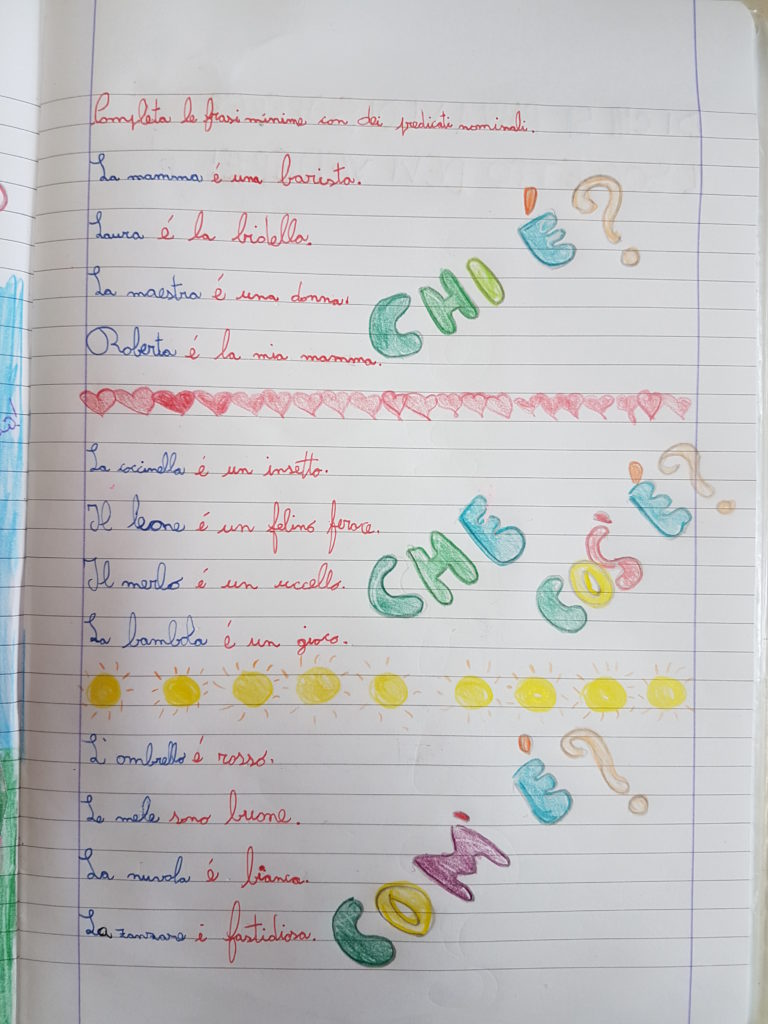 Completa le frasi minime con dei predicati nominali.
La mamma é una barista.
Laura é la bidella.
La maestra é una donna.
Roberta é la mia mamma.
CHI É?
La coccinella é un insetto.
Il leone é un felino feroce.
Il merlo é un uccello.
La bambola é un gioco.
CHE COS'É?
L'ombrello é rosso.
Le mele sono buone.
La nuvola é bianca.
La zanzare é fastidiosa.
COM'É?